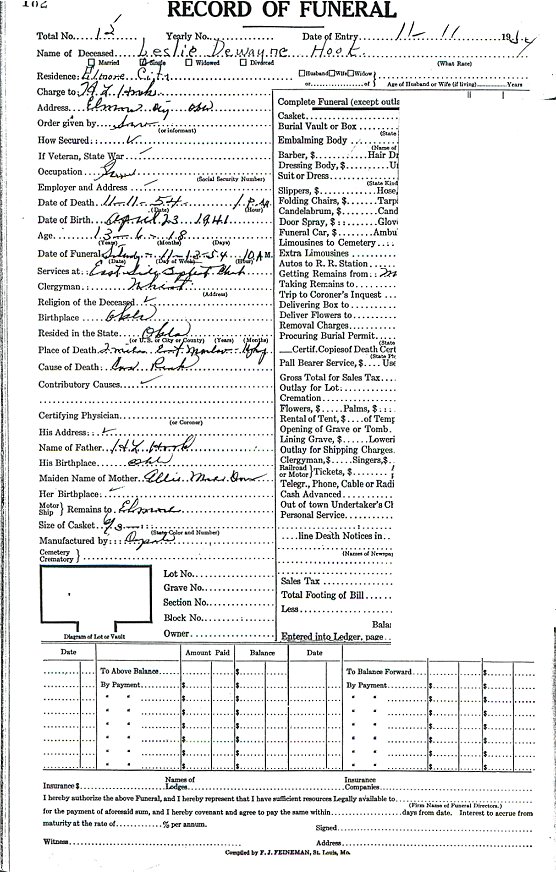 162
RECORD OF FUNERAL
Total No. 13 Yearly No. Date of Entry 11-11 1954
Name of Deceased Leslie Dewayne Hook
Married Single Widowed Divorced (What Race)
Residence: Elmore City Husband Wife Widow
or of Age of Husband or Wife (if living) Years
Charge to H L Hook
Address Elmore City Okla
Order given by Same
(or informant)
How Secured:
If Veteran, State War
Occupation
(Social Security Number)
Employer and Address
Date of Death 11-11-54 1 P.M.
(Date) (Hour)
Date of Birth April 23 1941
Age 13-6-18
(Years) (Months) (Days)
Date of Funeral 11-13-54 10 A.M.
(Date) (Day of Week) (Hour)
Services at: East Side Baptist Church
Clergyman:
(Address)
Religion of the Deceased
Birthplace Okla
Resided in the State Okla
(or U.S. or City or County) (Years) (Months)
Place of Death 2 miles East
Cause of Death Car
Contributory Causes
Certifying Physician
(or Coroner)
His Address:
Name of Father H L Hook
His Birthplace Okla
Maiden Name of Mother Allie
Her Birthplace
Motor Ship } Remains to Elmore
Size of Casket 6/3
(State Color and Number)
Manufactured by:
Cemetery Crematory }
Diagram of Lot or Vault
Lot No.
Grave No.
Section No.
Block No.
Owner
Complete Funeral (except outla
Casket
Burial Vault or Box
(State
Embalming Body
(Name of
Barber, $ Hair Dr
Dressing Body, $ U
Suit or Dress
(State Kind
Slippers, $ Hose,
Folding Chairs, $ Tarp
Candelabrum, $ Cand
Door Spray, $ Glov
Funeral Car, $ Ambu
Limousines to Cemetery
Extra Limousines
Autos to R. R. Station
Getting Remains from:
Taking Remains to
Trip to Coroner's Inquest
Delivering Box to
Deliver Flowers to
Removal Charges
Procuring Burial Permit
(State
Certif. Copies of Death Cert
(State Pl
Pall Bearer Service, $ Use
Gross Total for Sales Tax
Outlay for Lot:
Cremation
Flowers, $ Palms, $
Rental of Tent, $ of Temp
Opening of Grave or Tomb
Lining Grave, $ Loweri
Outlay for Shipping Charges
Clergyman, $ Singers, $
Railroad or Motor } Tickets, $
Telegr., Phone, Cable or Radi
Cash Advanced
Out of town Undertaker's Ch
Personal Service
line Death Notices in
(Names of Newspap
Sales Tax
Total Footing of Bill
Less
Balan
Entered into Ledger, page
Date Amount Paid Balance Date
To Above Balance $ To Balance Forward $
By Payment $ $ By Payment $ $
" " $ $ " " $ $
" " $ $ " " $ $
" " $ $ " " $ $
" " $ $ " " $ $
" " $ $ " " $ $
" " $ $ " " $ $
Insurance $ Names of Lodges Insurance Companies
I hereby authorize the above Funeral, and I hereby represent that I have sufficient resources Legally available to
(Firm Name of Funeral Directors.)
for the payment of aforesaid sum, and I hereby covenant and agree to pay the same within days from date. Interest to accrue from
maturity at the rate of % per annum. Signed
Witness Address
Compiled by F. J. FEINEMAN, St. Louis, Mo.